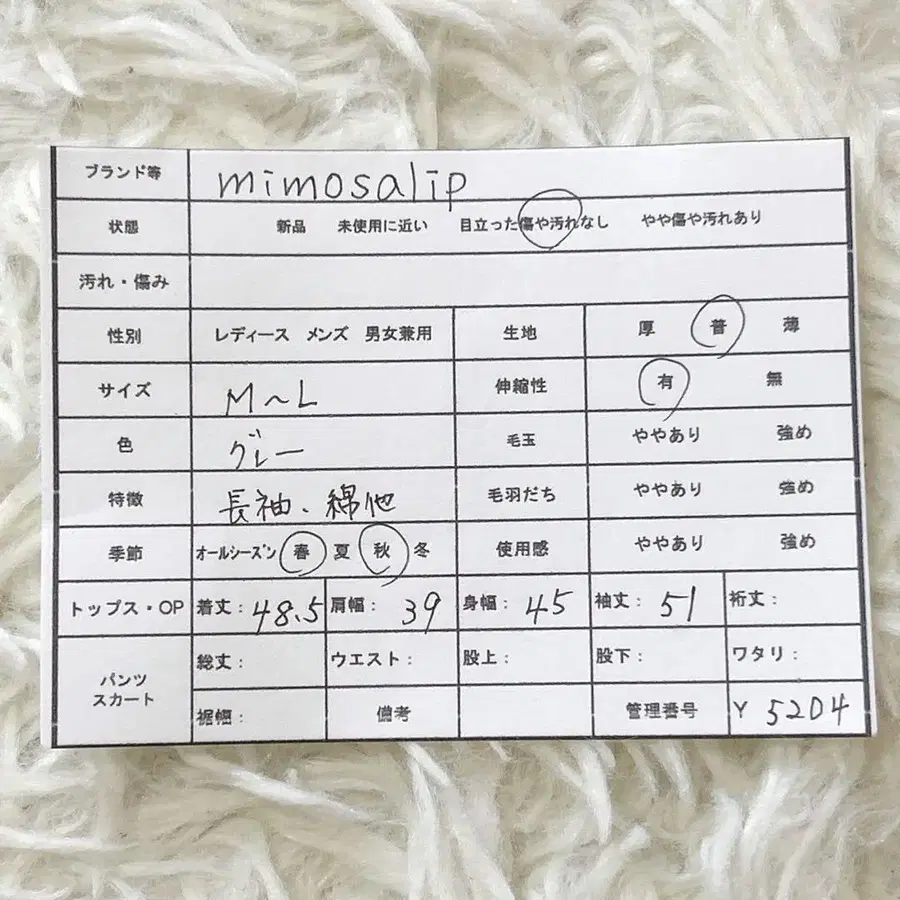 ブランド等 mimosalip
状態 新品 未使用に近い 目立った傷や汚れなし やや傷や汚れあり
汚れ・傷み
性別 レディース メンズ 男女兼用 生地 厚 普 薄
サイズ M～L 伸縮性 有 無
色 グレー 毛玉 ややあり 強め
特徴 長袖、綿他 毛羽だち ややあり 強め
季節 オールシーズン 春 夏 秋 冬 使用感 ややあり 強め
トップス・OP 着丈：48.5 肩幅：39 身幅：45 袖丈：51 裄丈：
パンツ スカート 総丈： ウエスト： 股上： 股下： ワタリ：
裾幅： 備考 管理番号 Y 5204